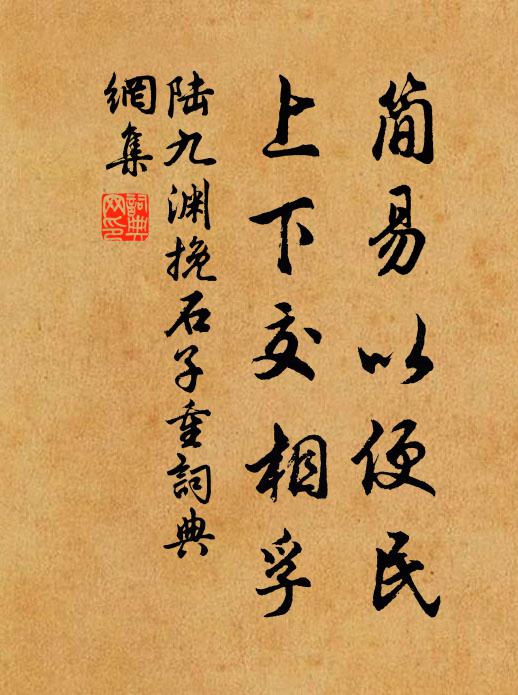 简易以便民
上下交相孚
陆九渊挽石子重詞典
網集
詞典网印